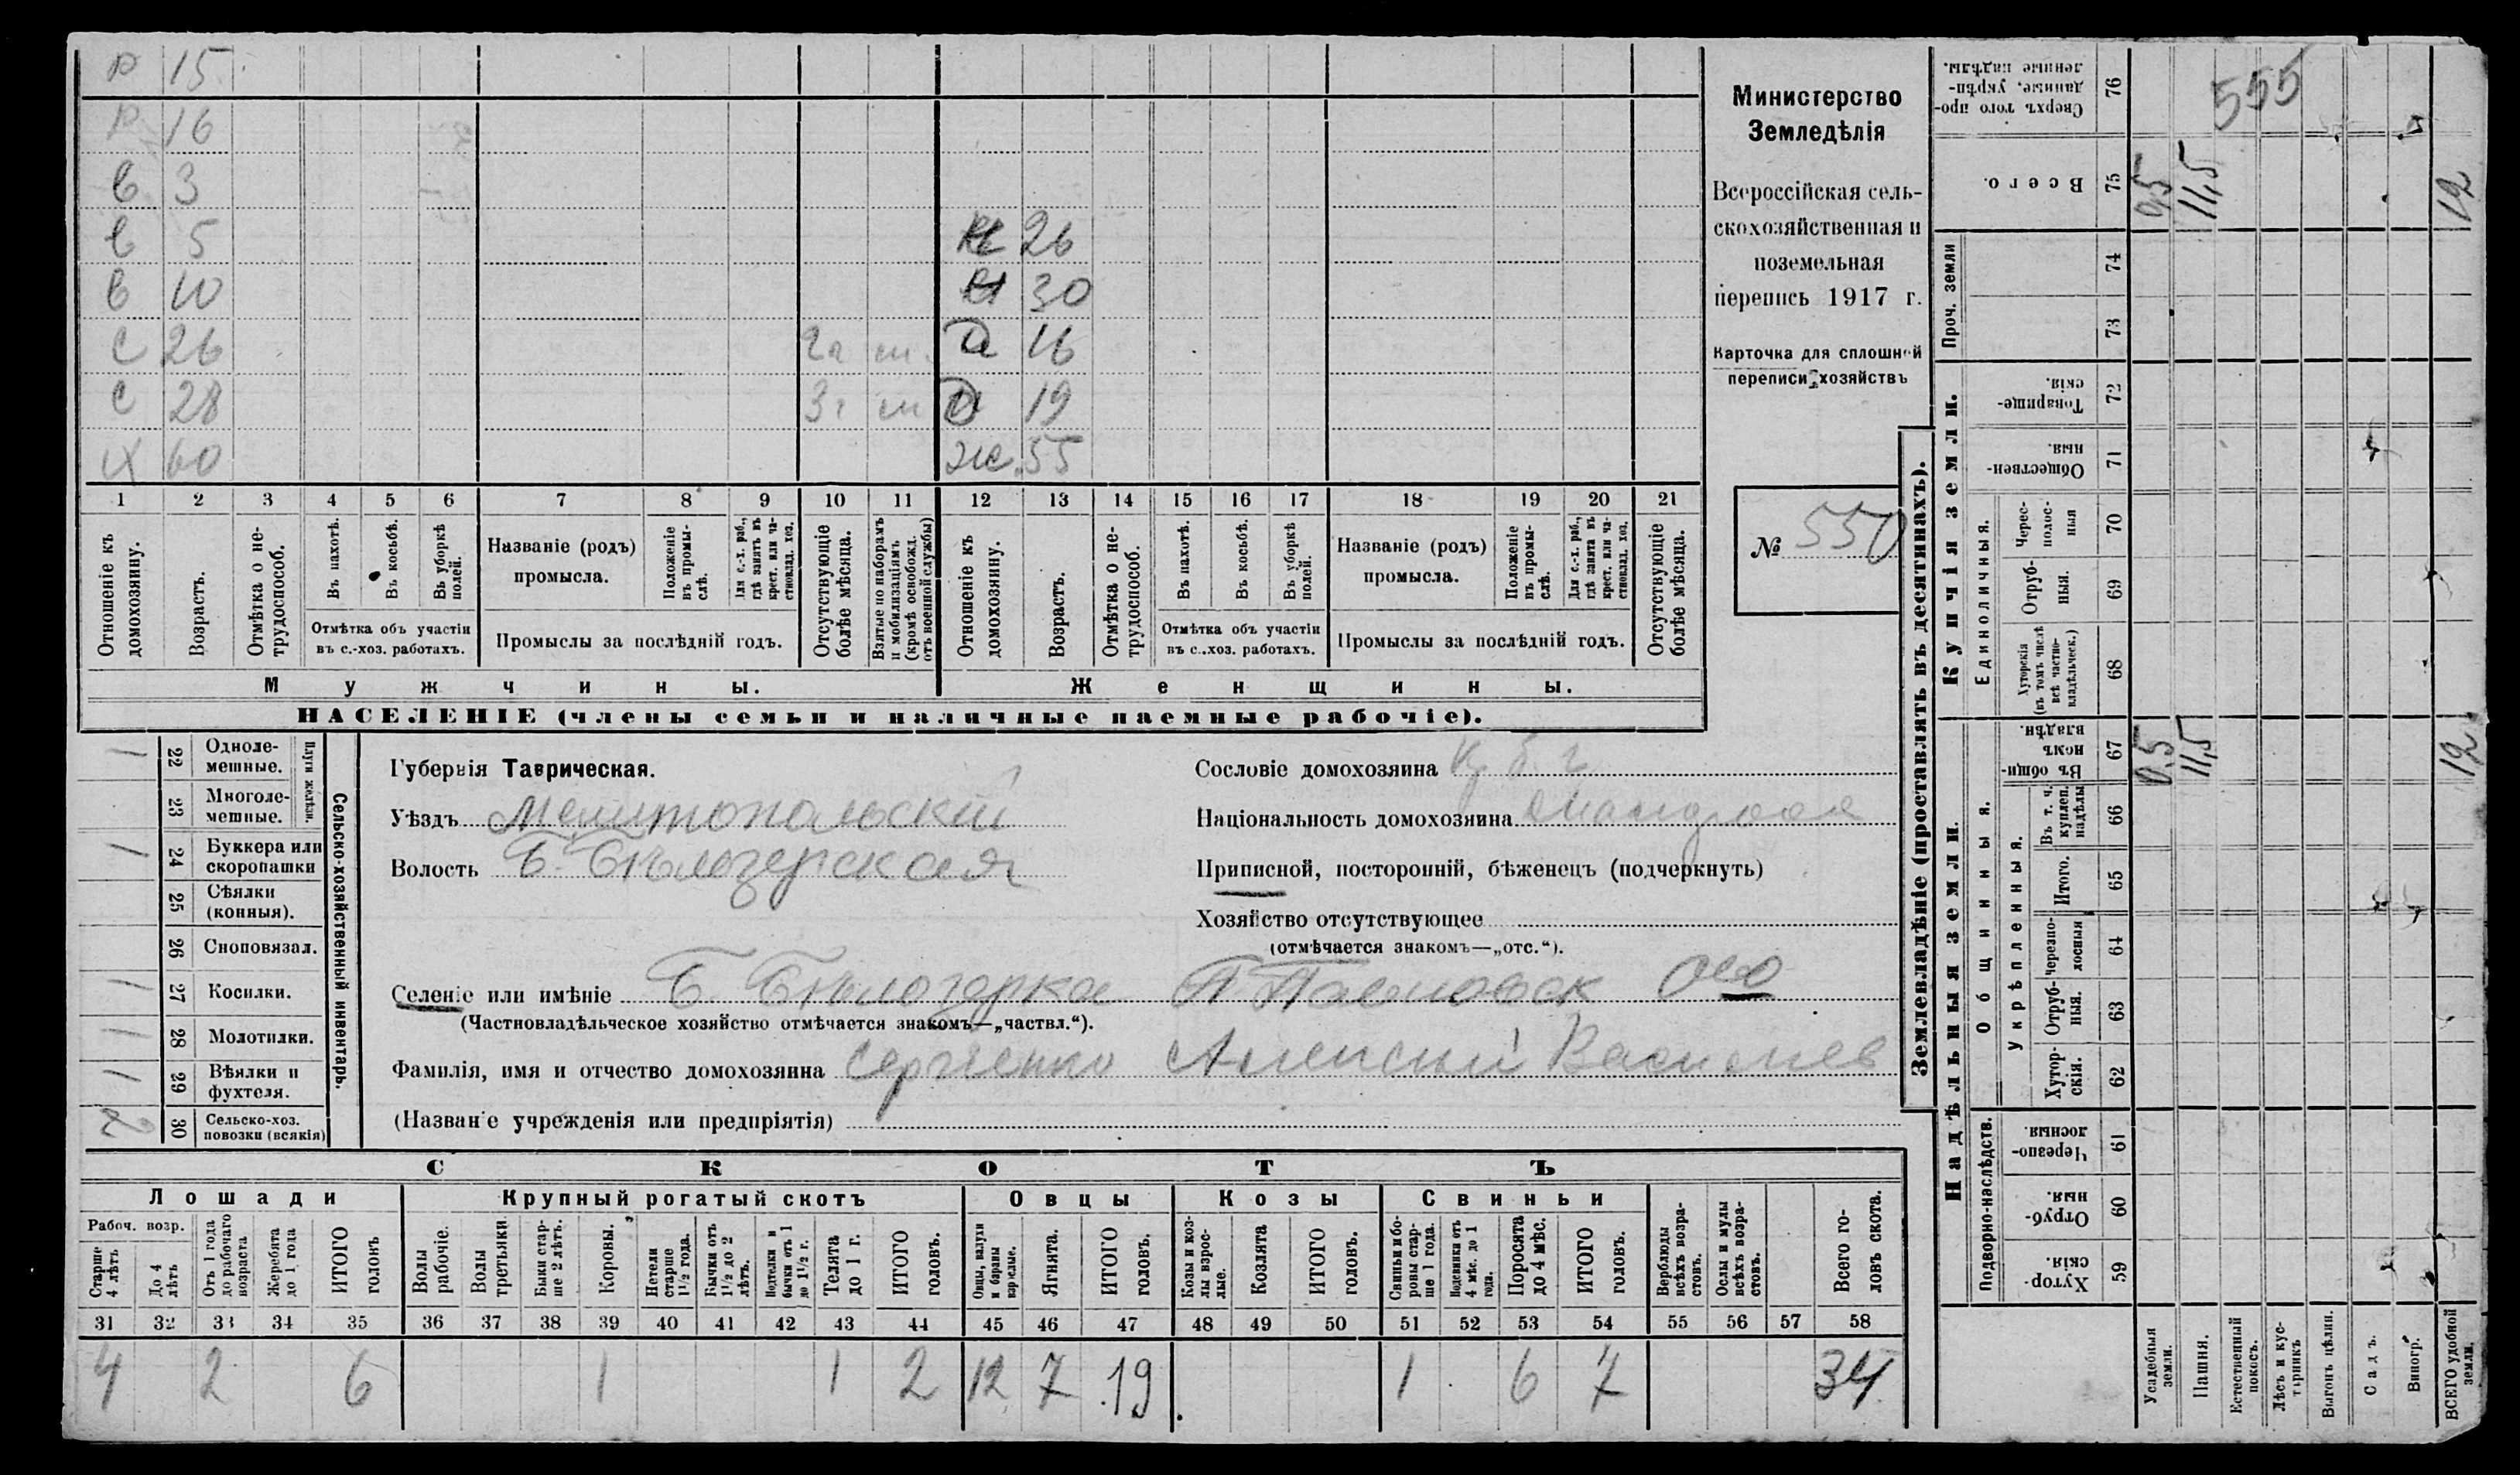 Р 15
Р 16
В 3
В 5 26
В 10 30
С 26 2г Д 16
С 28 3г Д 19
Х 60 Ж. 55
1 2 3 4 5 6 7 8 9 10 11 12 13 14 15 16 17 18 19 20 21
Отношеніе къ домохозяину.
Возрастъ.
Отмѣтка о не-трудоспособ.
Въ пахотѣ.
Въ косьбѣ.
Въ уборкѣ полей.
Отмѣтка объ участіи
въ с.-хоз. работахъ.
Названіе (родъ)
промысла.
Положеніе въ промы-слѣ.
Для с.-х. раб., гдѣ занятъ въ крест. или ча-стновлад. хоз.
Промыслы за послѣдній годъ.
Отсутствующіе болѣе мѣсяца.
Взятые по наборамъ и мобилизаціямъ (кромѣ освобожд. отъ военной службы)
Отношеніе къ домохозяину.
Возрастъ.
Отмѣтка о не-трудоспособ.
Въ пахотѣ.
Въ косьбѣ.
Въ уборкѣ полей.
Отмѣтка объ участіи
въ с.-хоз. работахъ.
Названіе (родъ)
промысла.
Положеніе въ промы-слѣ.
Для с.-х. раб., гдѣ занята въ крест. или ча-стновлад. хоз.
Промыслы за послѣдній годъ.
Отсутствующіе болѣе мѣсяца.
Мужчины.
Женщины.
НАСЕЛЕНІЕ (члены семьи и наличные наемные рабочіе).
Министерство
Земледѣлія
Всероссійская сель-
скохозяйственная и
поземельная
перепись 1917 г.
Карточка для сплошной
переписи хозяйствъ
№ 550
Сельско-хозяйственный инвентарь.
Плуги желѣзн.
1 22 Одноле-
мешные.
23 Многоле-
мешные.
1 24 Буккера или
скоропашки
25 Сѣялки
(конныя).
26 Сноповязал.
1 27 Косилки.
1 28 Молотилки.
1 29 Вѣялки и
фухтеля.
2 30 Сельско-хоз.
повозки (всякія)
Губернія Таврическая.
Уѣздъ Мелитопольскій
Волость Б. Бѣлозерская
Селеніе или имѣніе Б. Бѣлозерка П. Павловск о-во
(Частновладѣльческое хозяйство отмѣчается знакомъ—„частвл.“).
Фамилія, имя и отчество домохозяина Сергіенко Алексѣй Васильев
(Названіе учрежденія или предпріятія)
Сословіе домохозяина
Національность домохозяина Малоросс
Приписной, посторонній, бѣженецъ (подчеркнуть)
Хозяйство отсутствующее
(отмѣчается знакомъ—„отс.“).
СКОТЪ
Лошади Крупный рогатый скотъ Овцы Козы Свиньи
Рабоч. возр.
Старше 4 лѣтъ
До 4 лѣтъ
Отъ 1 года до рабочаго возраста
Жеребята до 1 года
ИТОГО головъ
Волы рабочіе.
Волы третьяки.
Быки стар-ше 2 лѣтъ.
Коровы.
Нетели старше 1½ года.
Бычки отъ 1½ до 2 лѣтъ.
Подтелки и бычки отъ 1 до 1½ г.
Телята до 1 г.
ИТОГО головъ.
Овцы, валухи и бараны взрослые.
Ягнята.
ИТОГО головъ.
Козы и коз-лы взрос-лые.
Козлята
ИТОГО головъ.
Свиньи и бо-ровы стар-ше 1 года.
Подсвинки отъ 4 мѣс. до 1 года.
Поросята до 4 мѣс.
ИТОГО головъ.
Верблюды всѣхъ возра-стовъ.
Ослы и мулы всѣхъ возра-стовъ.
Всего го-ловъ скота.
31 32 33 34 35 36 37 38 39 40 41 42 43 44 45 46 47 48 49 50 51 52 53 54 55 56 57 58
4 2 6 1 1 2 12 7 19 1 6 7 34
Землевладѣніе (проставлять въ десятинахъ).
Надѣльныя земли.
Купчія земли.
Проч. земли
Подворно-наслѣдств.
Общинныя.
Укрѣпленныя.
Единоличныя.
Хутор-скія. 59
Отруб-ныя. 60
Черезпо-лосныя 61
Хутор-скія. 62
Отруб-ныя. 63
Черезпо-лосныя 64
Итого. 65
Въ т. ч. куплен. надѣлы 66
Въ общи-номъ владѣн. 67
Хуторскія (въ томъ числѣ всѣ частно-владѣльческ.) 68
Отруб-ныя. 69
Черес-полос-ныя 70
Обществен-ныя. 71
Товарище-скія. 72
73
74
Всего. 75
Сверхъ того про-данные, укрѣп-ленные надѣлы. 76
Усадебныя земли.
Пашня.
Естественный покосъ.
Лѣсъ и кус-тарникъ
Выгонъ цѣлин.
Садъ.
Виногр.
ВСЕГО удобной земли.
0,5 11,5 12
0,5 11,5 12
555